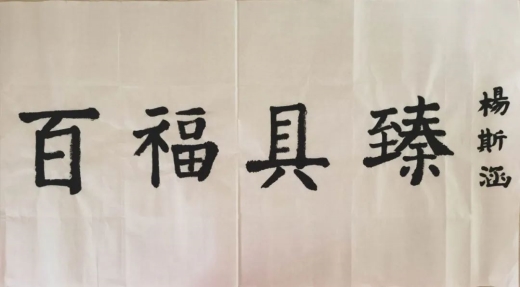 百福具臻
楊斯涵